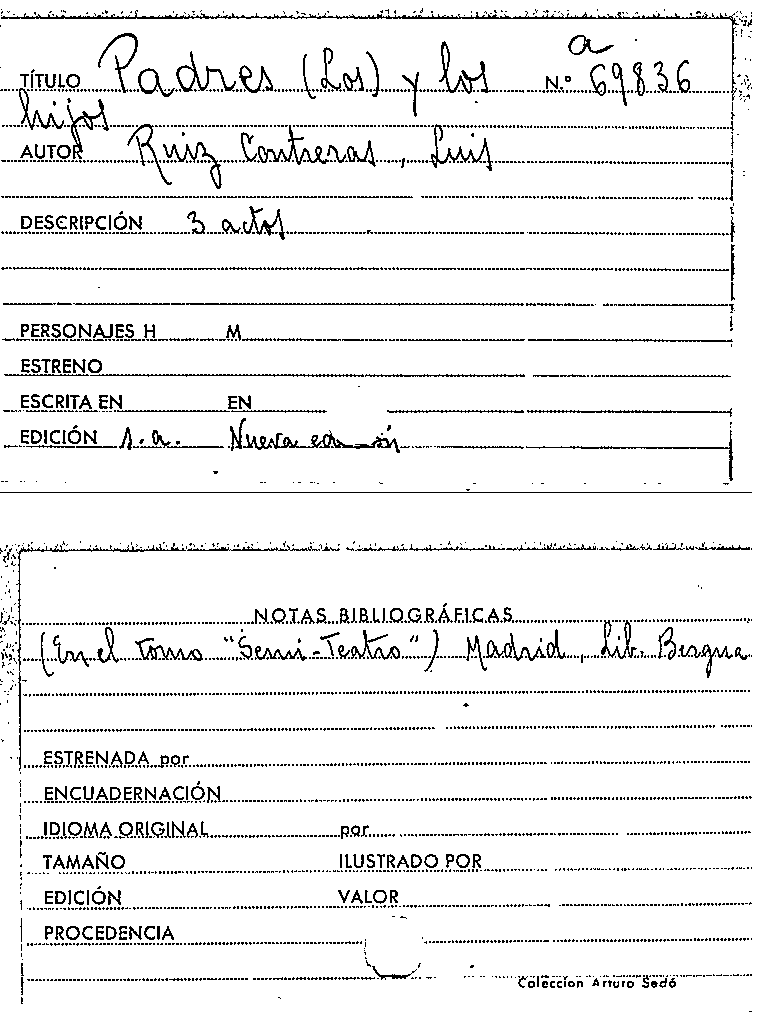 a
TÍTULO Padres (Los) y los N.º 69836
hijos
AUTOR Ruiz Contreras, Luis
DESCRIPCIÓN 3 actos
PERSONAJES H M
ESTRENO
ESCRITA EN EN
EDICIÓN s.a. Nueva
NOTAS BIBLIOGRÁFICAS
(En el tomo "Semi-Teatro") Madrid, Lib. Bergua
ESTRENADA por
ENCUADERNACIÓN
IDIOMA ORIGINAL por
TAMAÑO ILUSTRADO POR
EDICIÓN VALOR
PROCEDENCIA
Colección Arturo Sedó